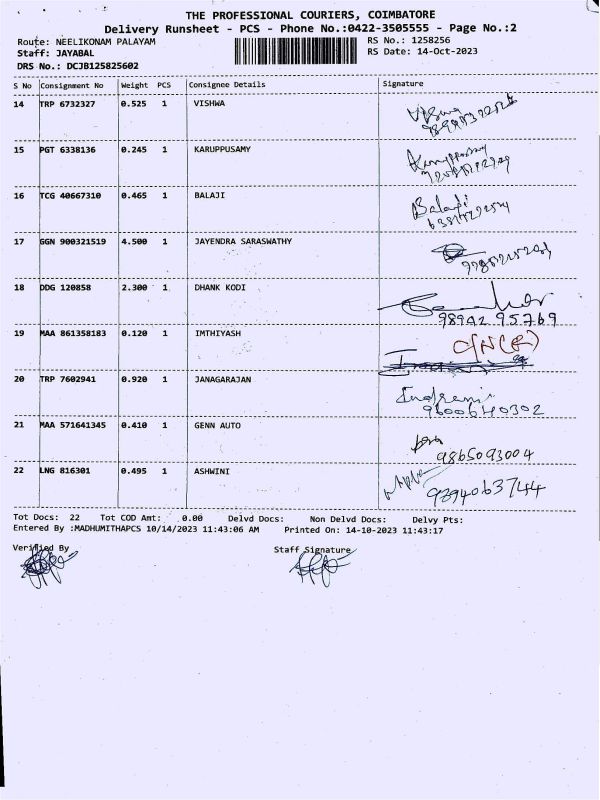 THE PROFESSIONAL COURIERS, COIMBATORE
Delivery Runsheet - PCS - Phone No.:0422-3505555 - Page No.:2
Route: NEELIKONAM PALAYAM RS No.: 1258256
Staff: JAYABAL RS Date: 14-Oct-2023
DRS No.: DCJB125825602
S No Consignment No Weight PCS Consignee Details Signature
14 TRP 6732327 0.525 1 VISHWA
15 PGT 6338136 0.245 1 KARUPPUSAMY
16 TCG 40667310 0.465 1 BALAJI Balaji
17 GGN 900321519 4.500 1 JAYENDRA SARASWATHY
18 DDG 120858 2.300 1 DHANK KODI
98942 95769
19 MAA 861358183 0.120 1 IMTHIYASH
20 TRP 7602941 0.920 1 JANAGARAJAN
9600640302
21 MAA 571641345 0.410 1 GENN AUTO
9865093004
22 LNG 816301 0.495 1 ASHWINI
9894063744
Tot Docs: 22 Tot COD Amt: 0.00 Delvd Docs: Non Delvd Docs: Delvy Pts:
Entered By :MADHUMITHAPCS 10/14/2023 11:43:06 AM Printed On: 14-10-2023 11:43:17
Verified By Staff Signature